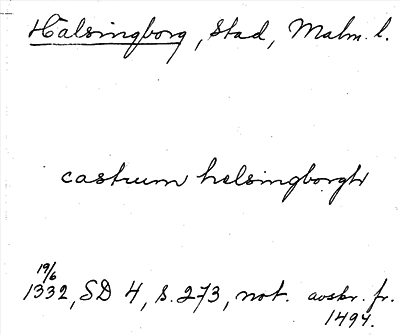 Halsingborg, stad, Malm. l.
castrum helsingborgh
19/6
1332, SD 4, s. 273, not. avskr. fr.
1494.